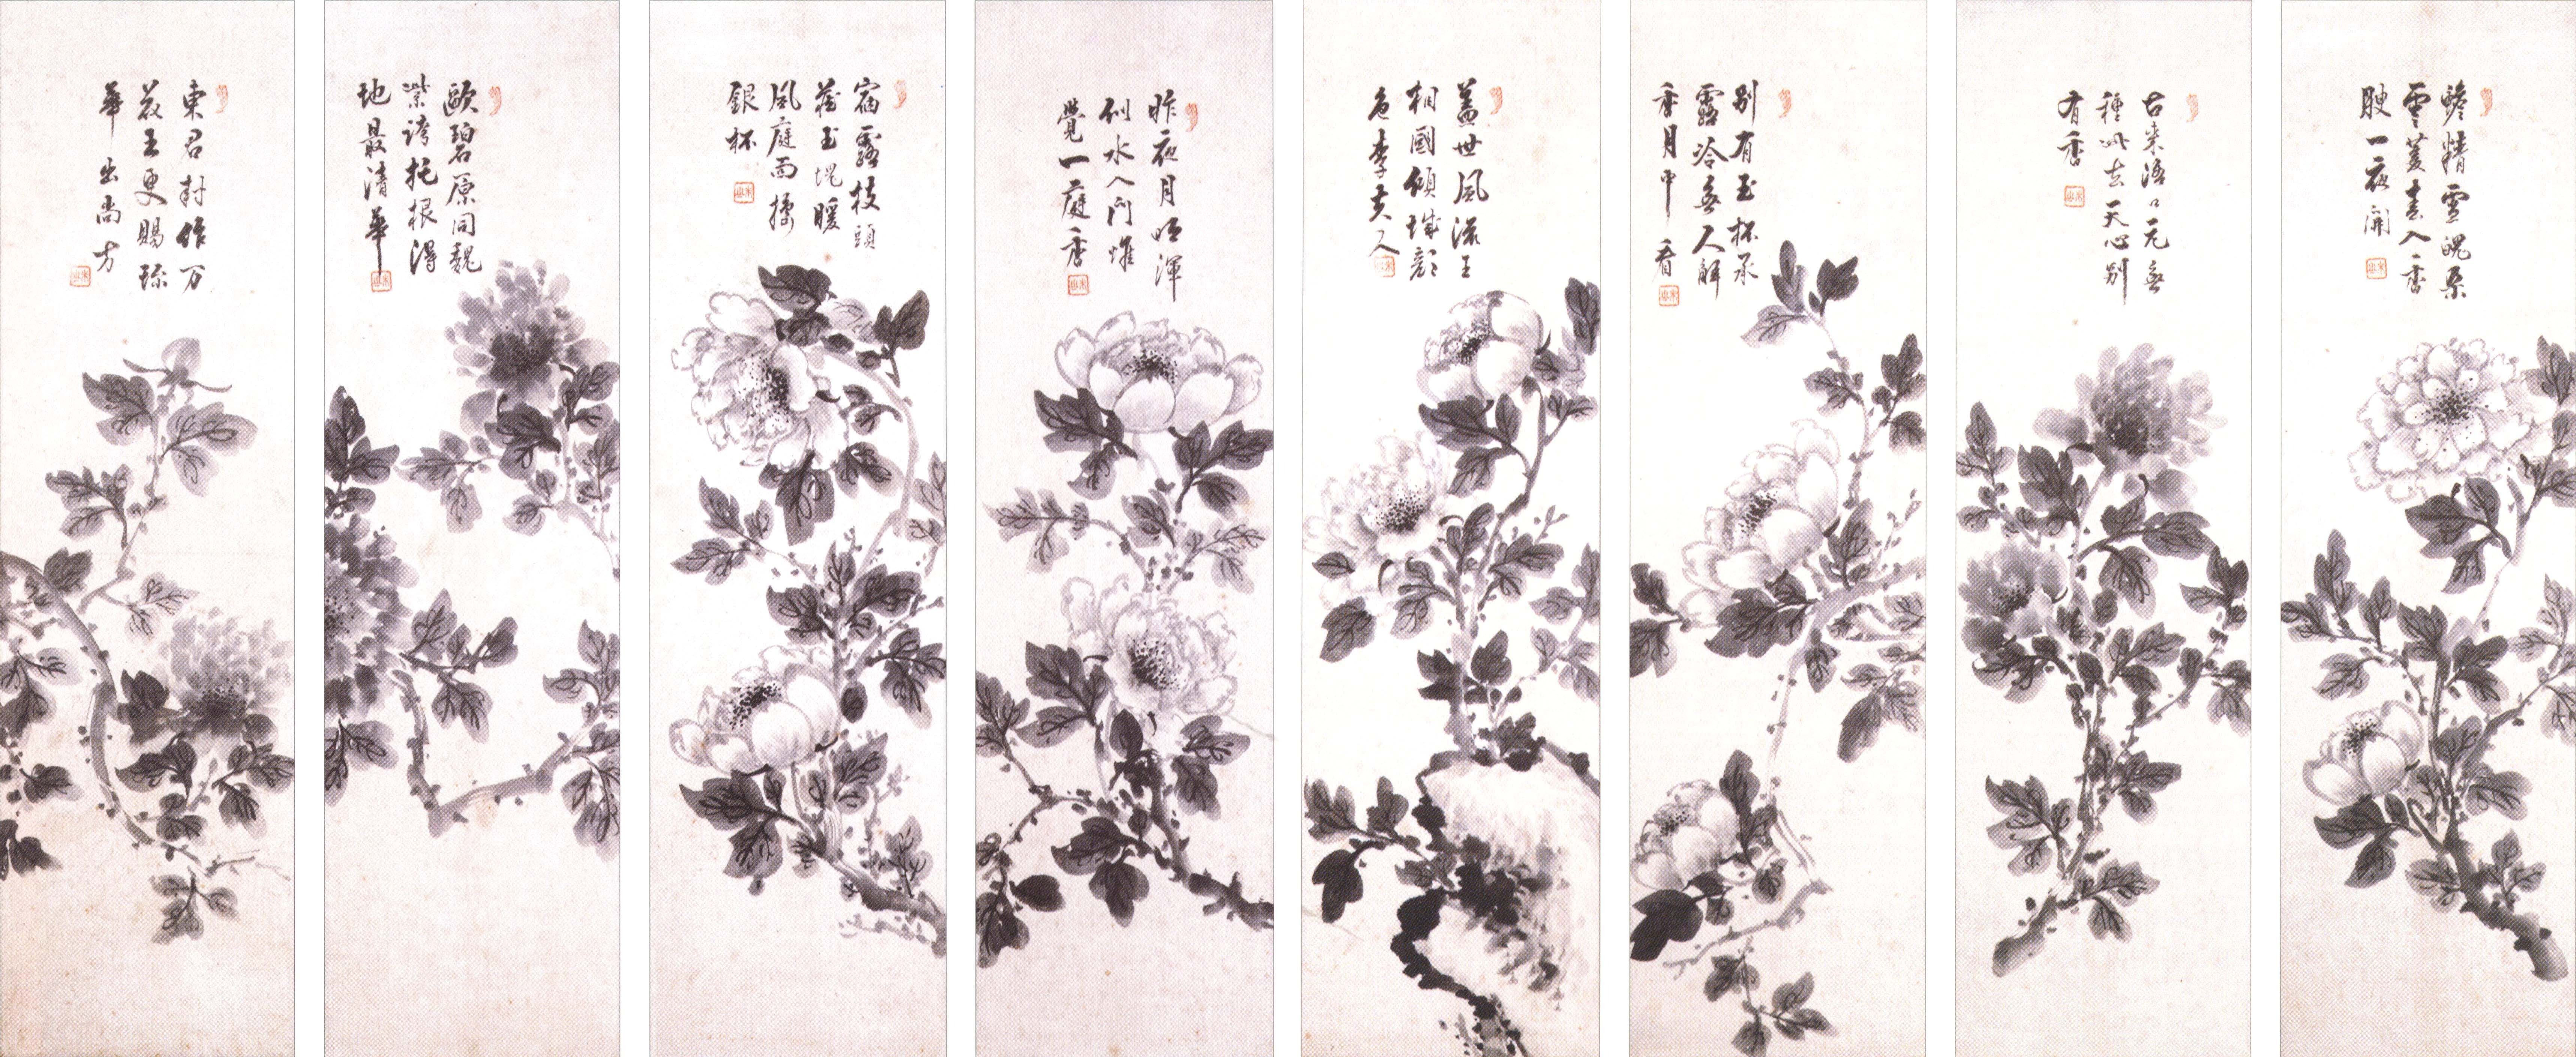 蟾精雪魄孕
雲荄春入香
腴一夜開
古來洛口元無
種此去天心別
有香
別有玉杯承
露冷無人解
香月中看
蓋世風流王
相國傾城顏
色李夫人
昨夜月明渾
似水入門惟
覺一庭香
宿露枝頭
藏玉塊暖
風庭面
銀杯
歐碧原同魏
紫誇托根得
地最清華
東君封作万
花王更賜珍
華出尚方